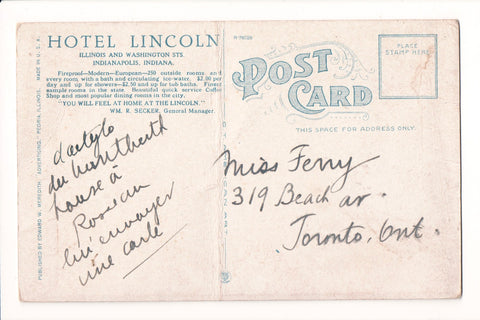 HOTEL LINCOLN
ILLINOIS AND WASHINGTON STS.
INDIANAPOLIS, INDIANA.
Fireproof—Modern—European—250 outside rooms, and
every room with a bath and circulating ice-water. $2.00 per
day and up for showers—$2.50 and up for tub baths. Finest
sample rooms in the state. Beautiful quick service Coffee
Shop and most popular dining rooms in the city.
"YOU WILL FEEL AT HOME AT THE LINCOLN."
WM. R. SECKER, General Manager.
MADE IN U.S.A.
PUBLISHED BY EDWARD W. MEREDITH, ADVERTISING, PEORIA, ILLINOIS.
POST
CARD
THIS SPACE FOR ADDRESS ONLY.
PLACE
STAMP HERE
dactylo
à
envoyer
une carte
Miss Ferry
319 Beach av.
Toronto, Ont.